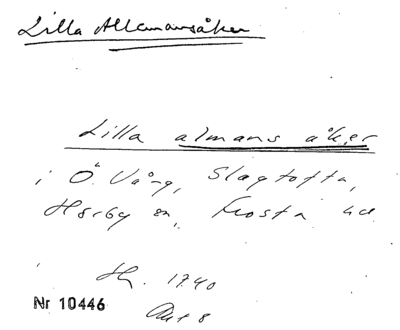 Lilla Allemansåker
Lilla almans åker
i Ö. Vång, Slagtofta,
Hörby sn, Frosta hd
Hr. 1740
Akt 8
Nr 10446